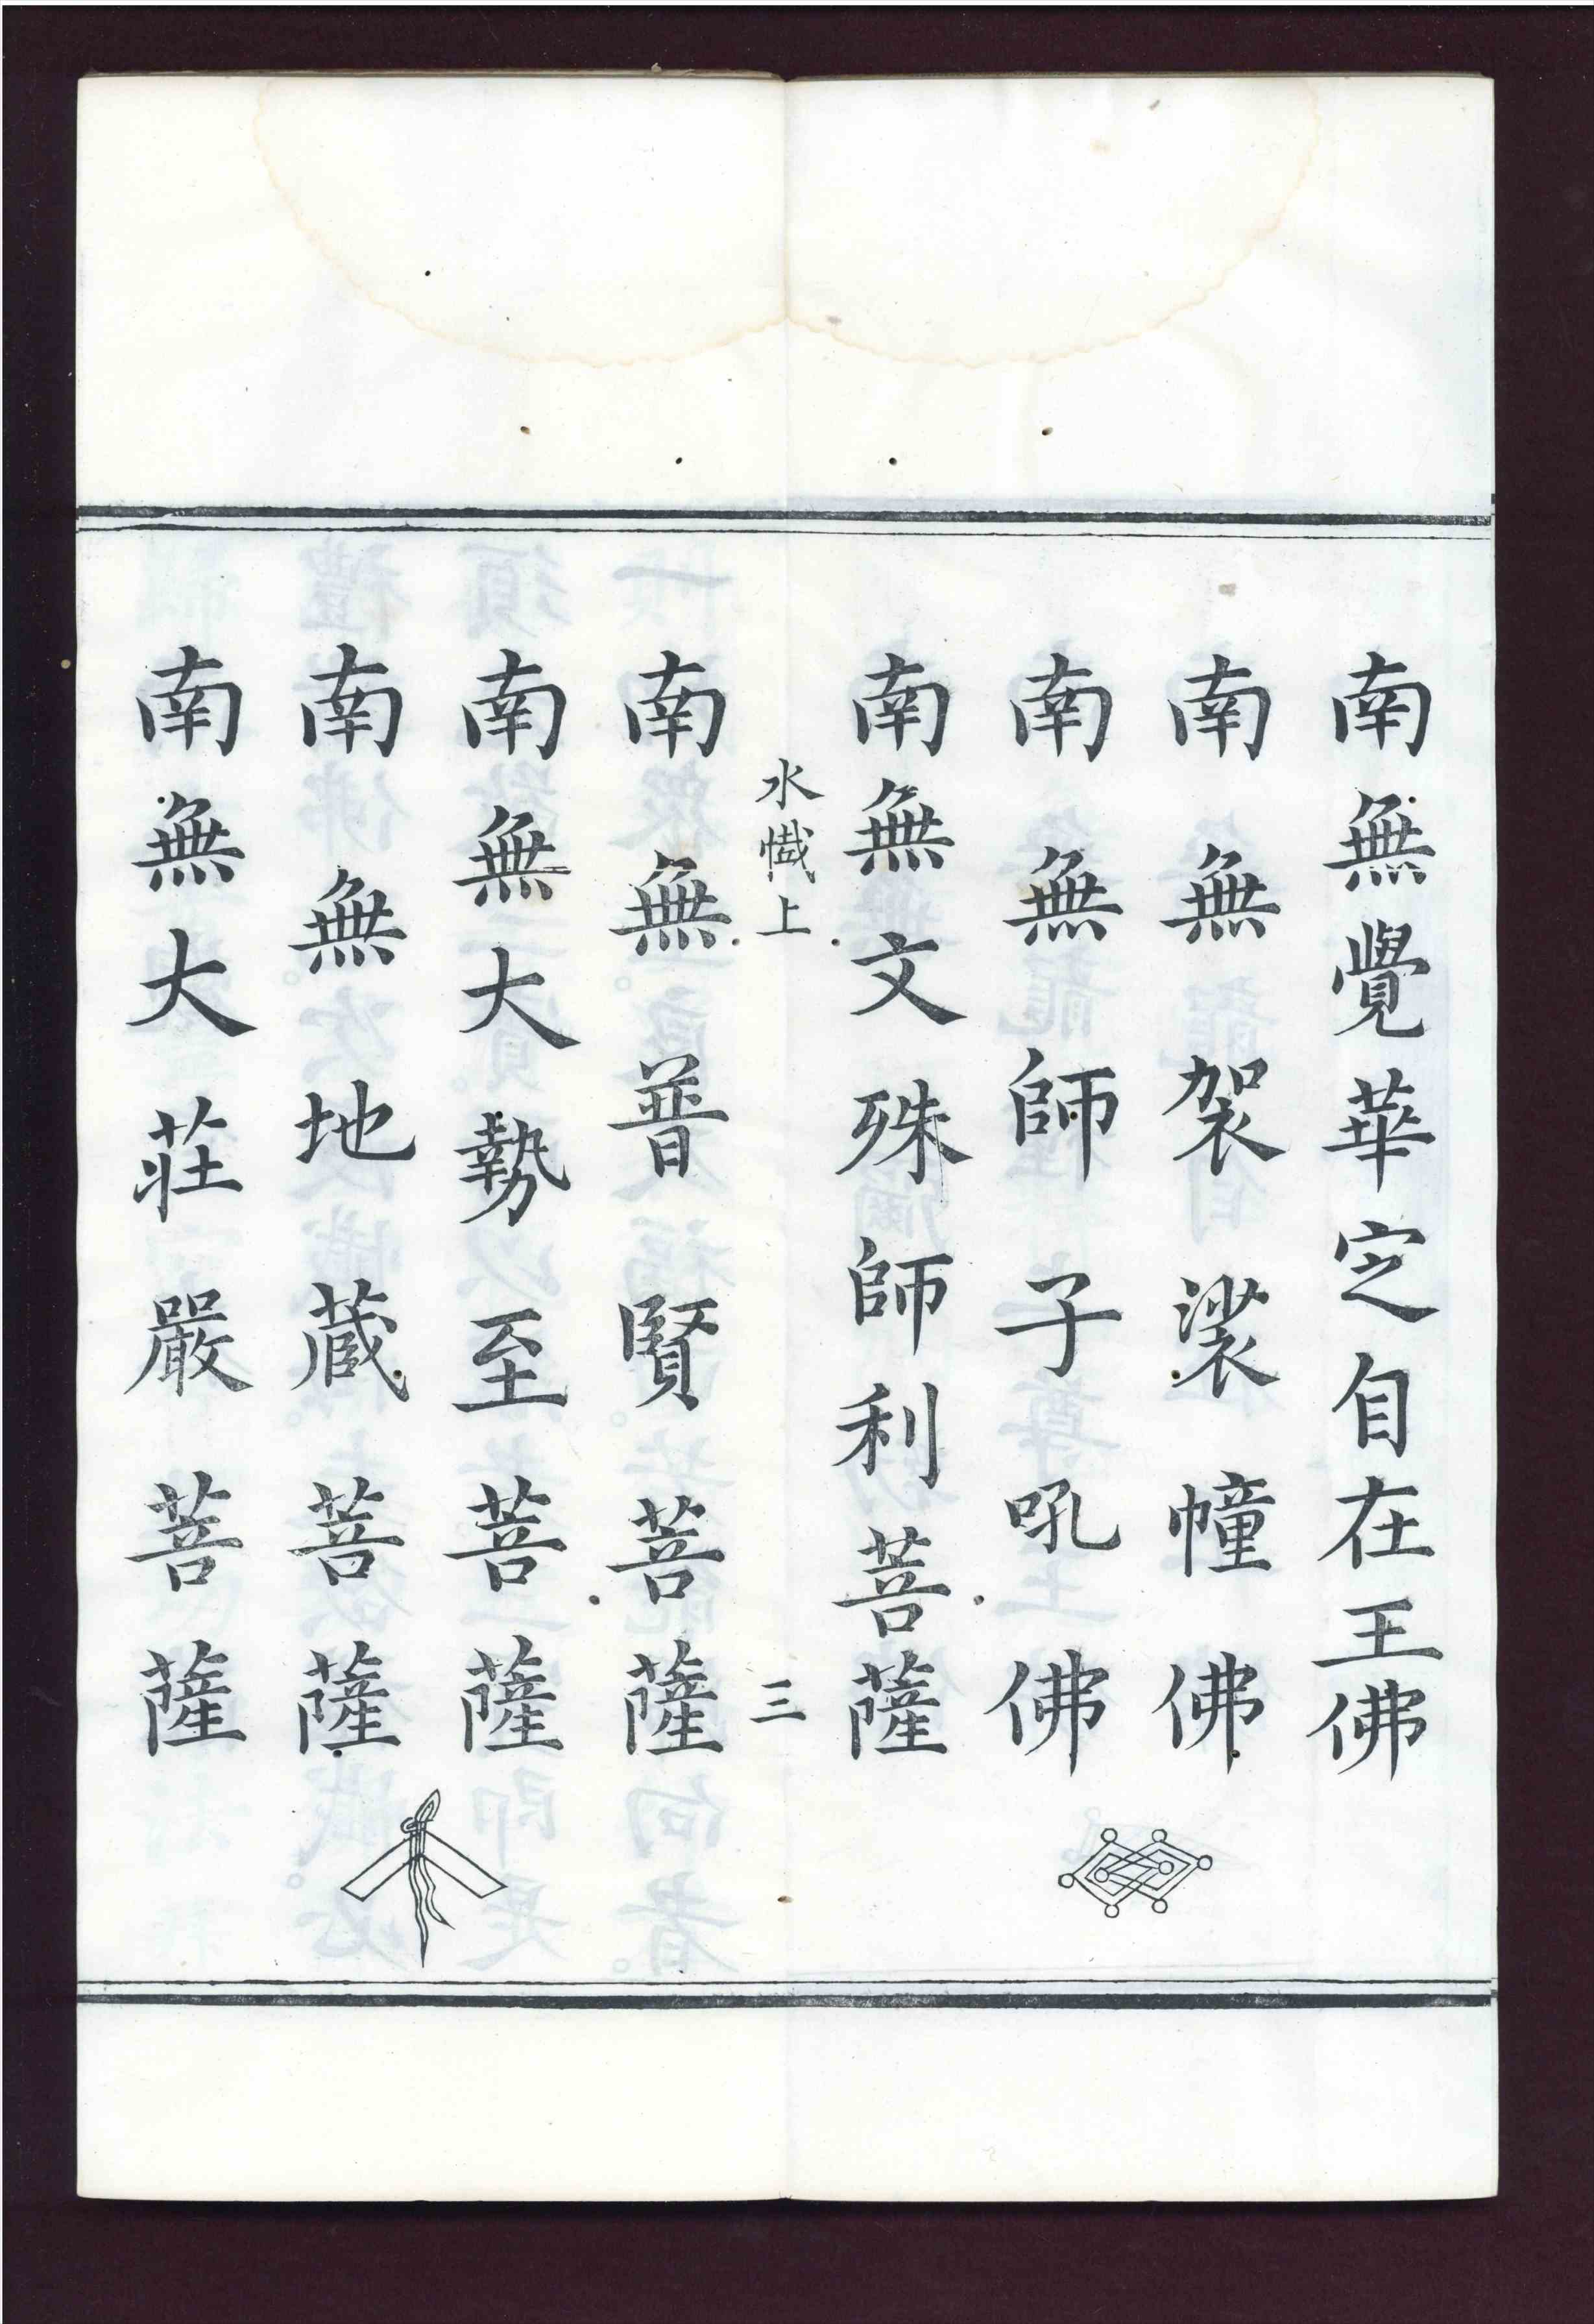 南無覺華定自在王佛
南無袈裟幢佛
南無師子吼佛
南無文殊師利菩薩
水懺上
三
南無普賢菩薩
南無大勢至菩薩
南無地藏菩薩
南無大莊嚴菩薩